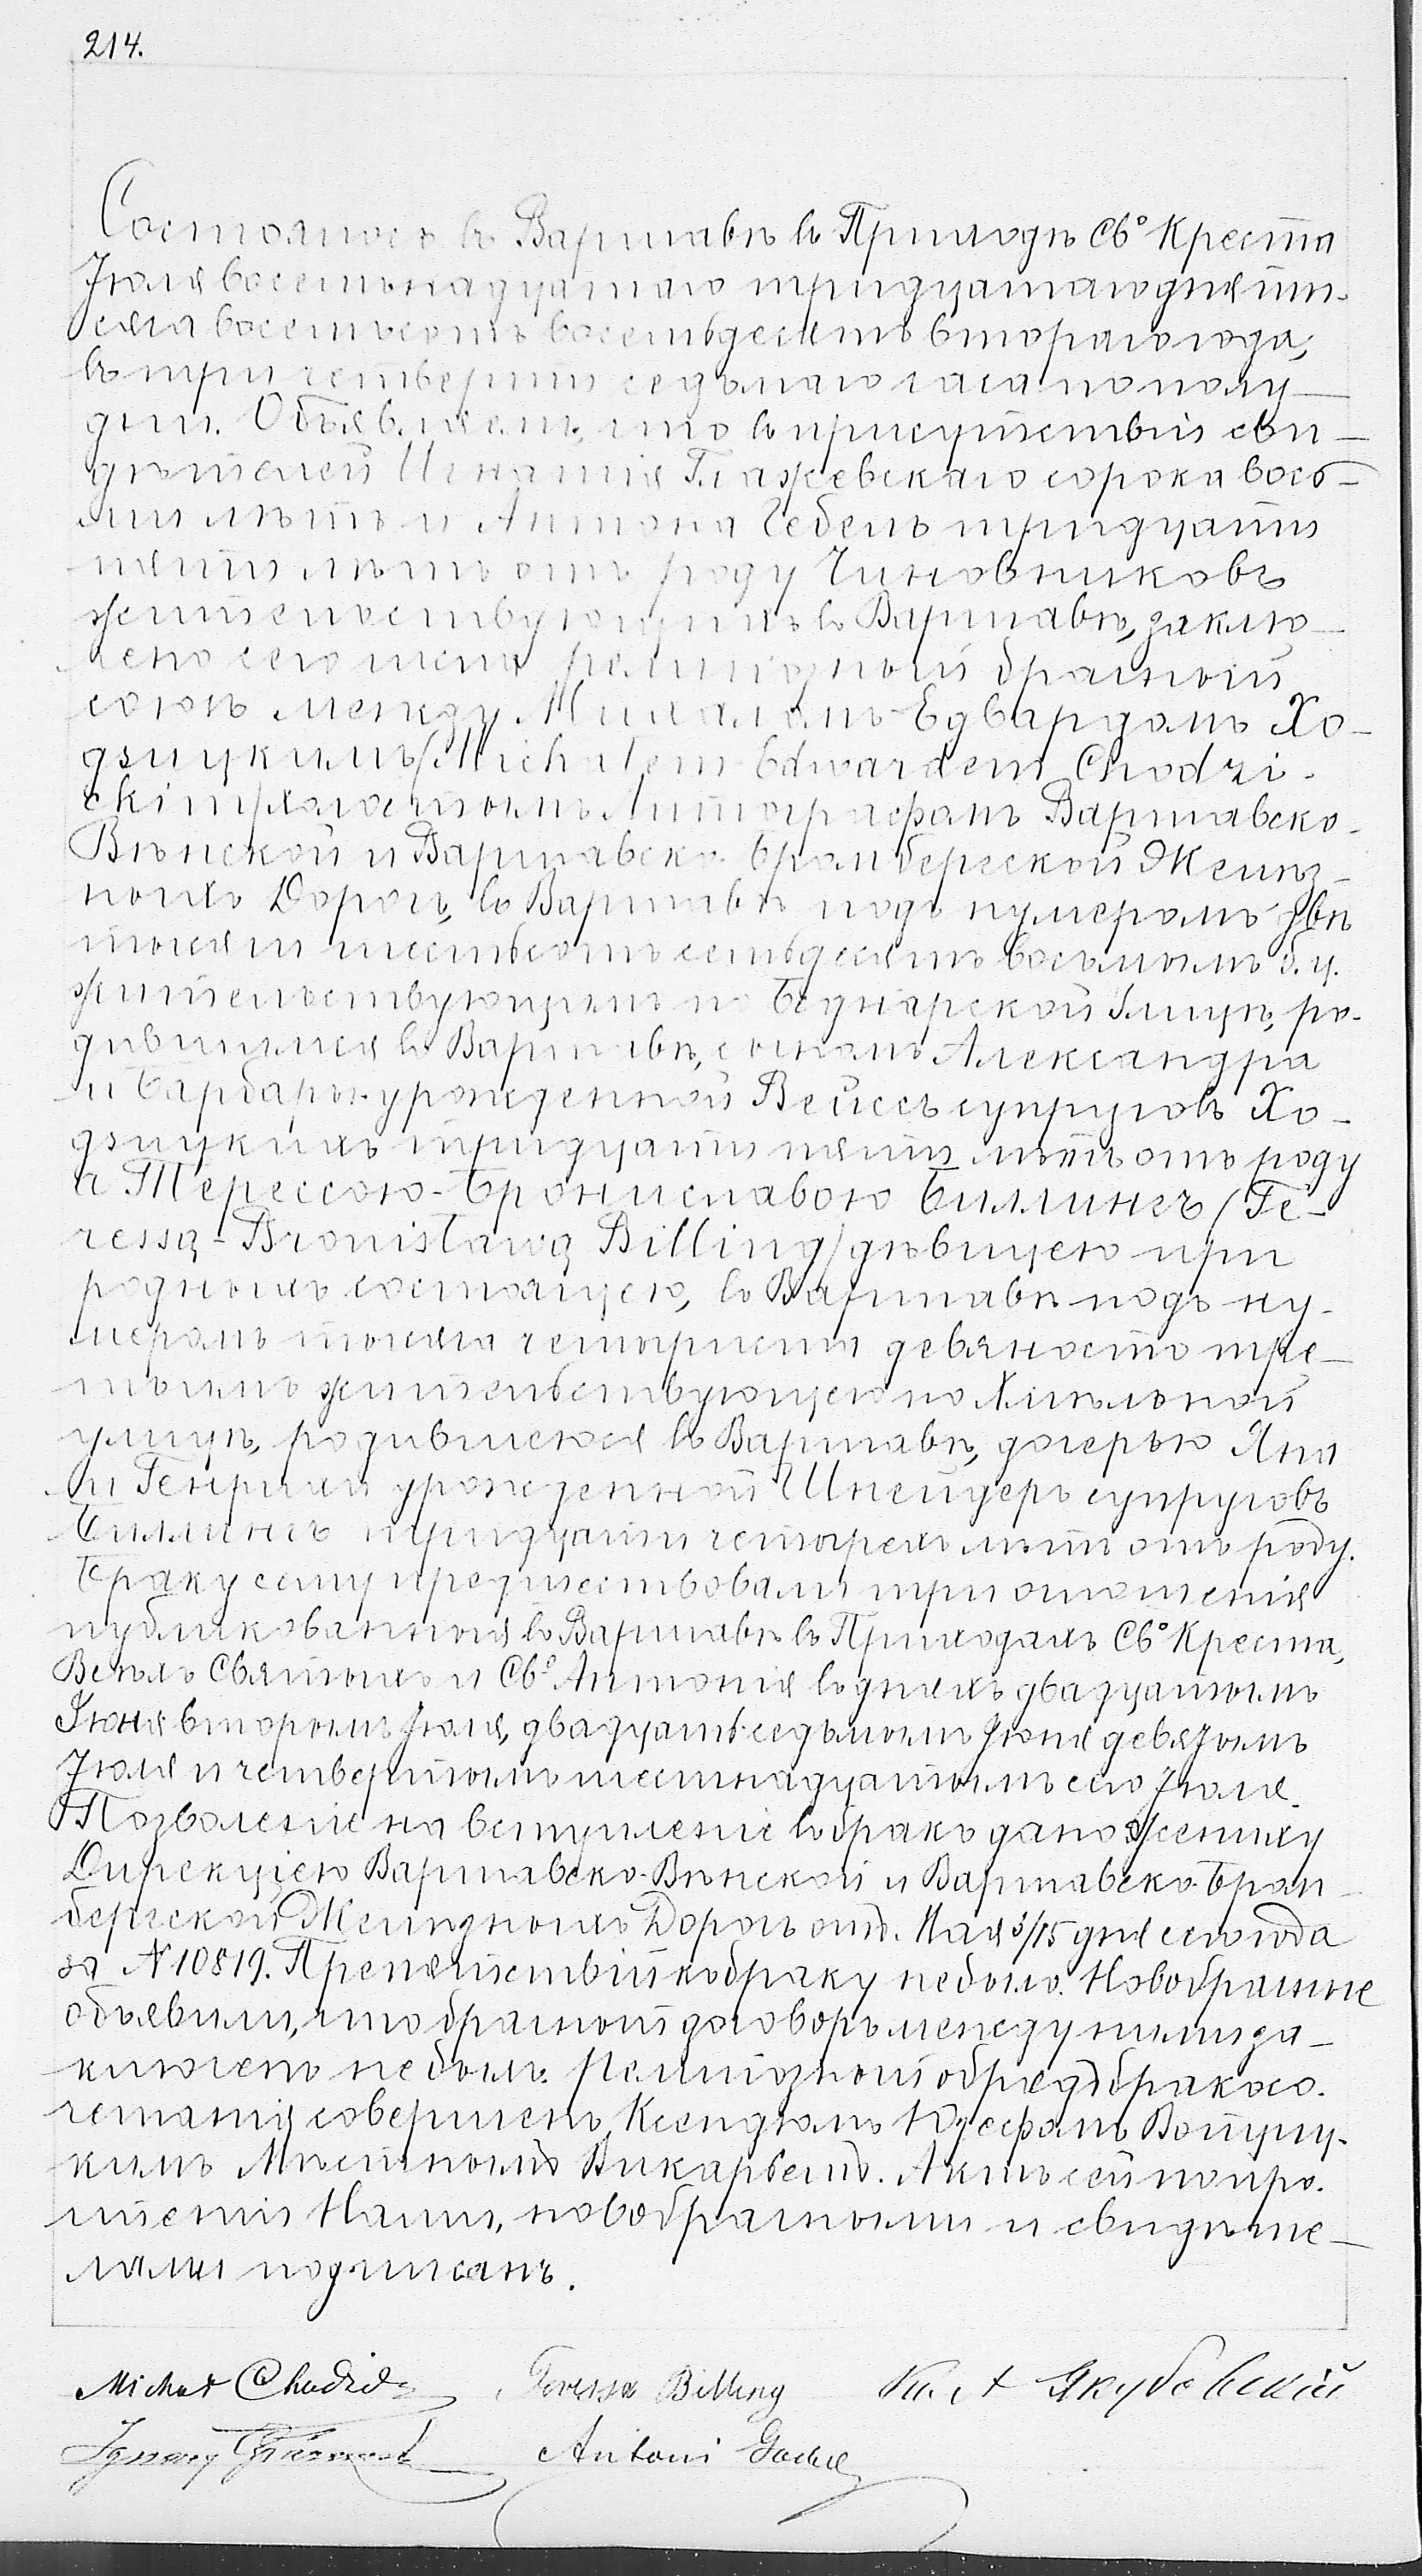 214.
Состоялось въ Варшавѣ въ Приходѣ Св° Креста
Іюля восемьнадцатаго тридцатаго дня ты-
сяча восемьсотъ восемьдесятъ втораго года,
въ три четверти седьмаго часа по полу-
дни. Объявляемъ, что въ присутствіи сви-
дѣтелей Игнатія Гражевскаго сорока вось-
ми лѣтъ и Антона Гебель тридцати
пяти лѣтъ отъ роду Чиновниковъ
жительствующихъ въ Варшавѣ, заклю-
чено сего числа религіозный брачный
союзъ между Михаломъ-Едвардомъ Хо-
дзицкимъ /Michałem-Edwardem Chodzi-
ckim/ холостымъ Литографомъ Варшавско-
Вѣнской и Варшавско-Бромбергской Желѣз-
ныхъ Дорогъ, въ Варшавѣ подъ нумеромъ двѣ
тысячи шестьсотъ семьдесятъ восьмымъ б. ц.
жительствующимъ по Беднарской Улицѣ, ро-
дившимся въ Варшавѣ, сыномъ Александра
и Барбары урожденной Вейссъ супруговъ Хо-
дзицкихъ тридцати пяти лѣтъ отъ роду
и Терессою-Брониславою Биллингъ /Te-
ressą-Bronisławą Billing/ дѣвицею при
родныхъ состоящею, въ Варшавѣ подъ ну-
меромъ тысяча четыриста девяносто тре-
тьимъ жительствующею по Хмѣльной
улицѣ, родившеюся въ Варшавѣ, дочерью Яна
и Генрики урожденной Шнейдеръ супруговъ
Биллингъ тридцати четырехъ лѣтъ отъ роду.
Браку сему предшествовали три оглашенія
публикованныя въ Варшавѣ въ Приходахъ Св° Креста,
Всѣхъ Святыхъ и Св° Антонія въ дняхъ двадцатымъ
Іюня вторымъ Іюля, двадцать седьмымъ Іюня девятымъ
Іюля и четвертымъ шестнадцатымъ сего Іюля.
Позволеніе на вступленіе въ бракъ дано Жениху
Дирекціею Варшавско-Вѣнской и Варшавско-Бром-
бергской Желѣзныхъ Дорогъ отъ. Мая 3/15 дня сего года
за N 10819. Препятствій къ браку не было. Новобрачные
объявили, что брачный договоръ между ними за-
ключенъ не былъ. Религіозный обрядъ бракосо-
четанія совершенъ Ксендзомъ Юзефомъ
кимъ Мѣстнымъ Викарьемъ. Актъ сей по про-
чтеніи Нами, новобрачными и свидѣте-
лями подписанъ.
Michał Teressa Billing Якубовскій
Ignacy Antoni